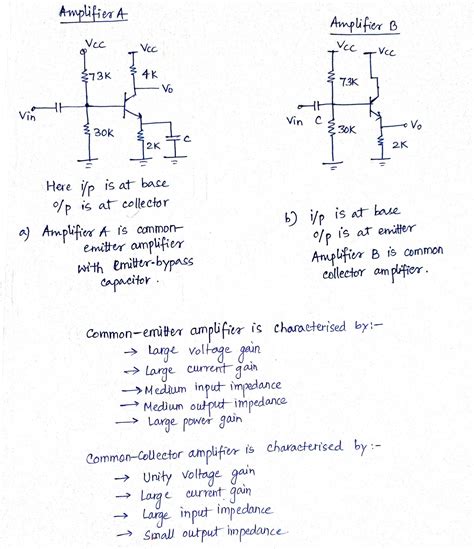 Amplifier A
Amplifier B
Vcc
Vcc
73K
4K
Vo
Vin
30K
2K
C
Vcc
Vcc
73K
Vin
C
30K
Vo
2K
Here i/p is at base
o/p is at collector
a) Amplifier A is common-
emitter amplifier
with Emitter-bypass
capacitor.
b) i/p is at base
o/p is at emitter
Amplifier B is common
collector amplifier.
Common-emitter amplifier is characterised by:-
→ Large voltage gain
→ Large current gain
→ Medium input impedance
→ Medium output impedance
→ Large power gain
Common-Collector amplifier is characterised by:-
→ Unity voltage gain
→ Large current gain
→ Large input impedance
→ Small output impedance